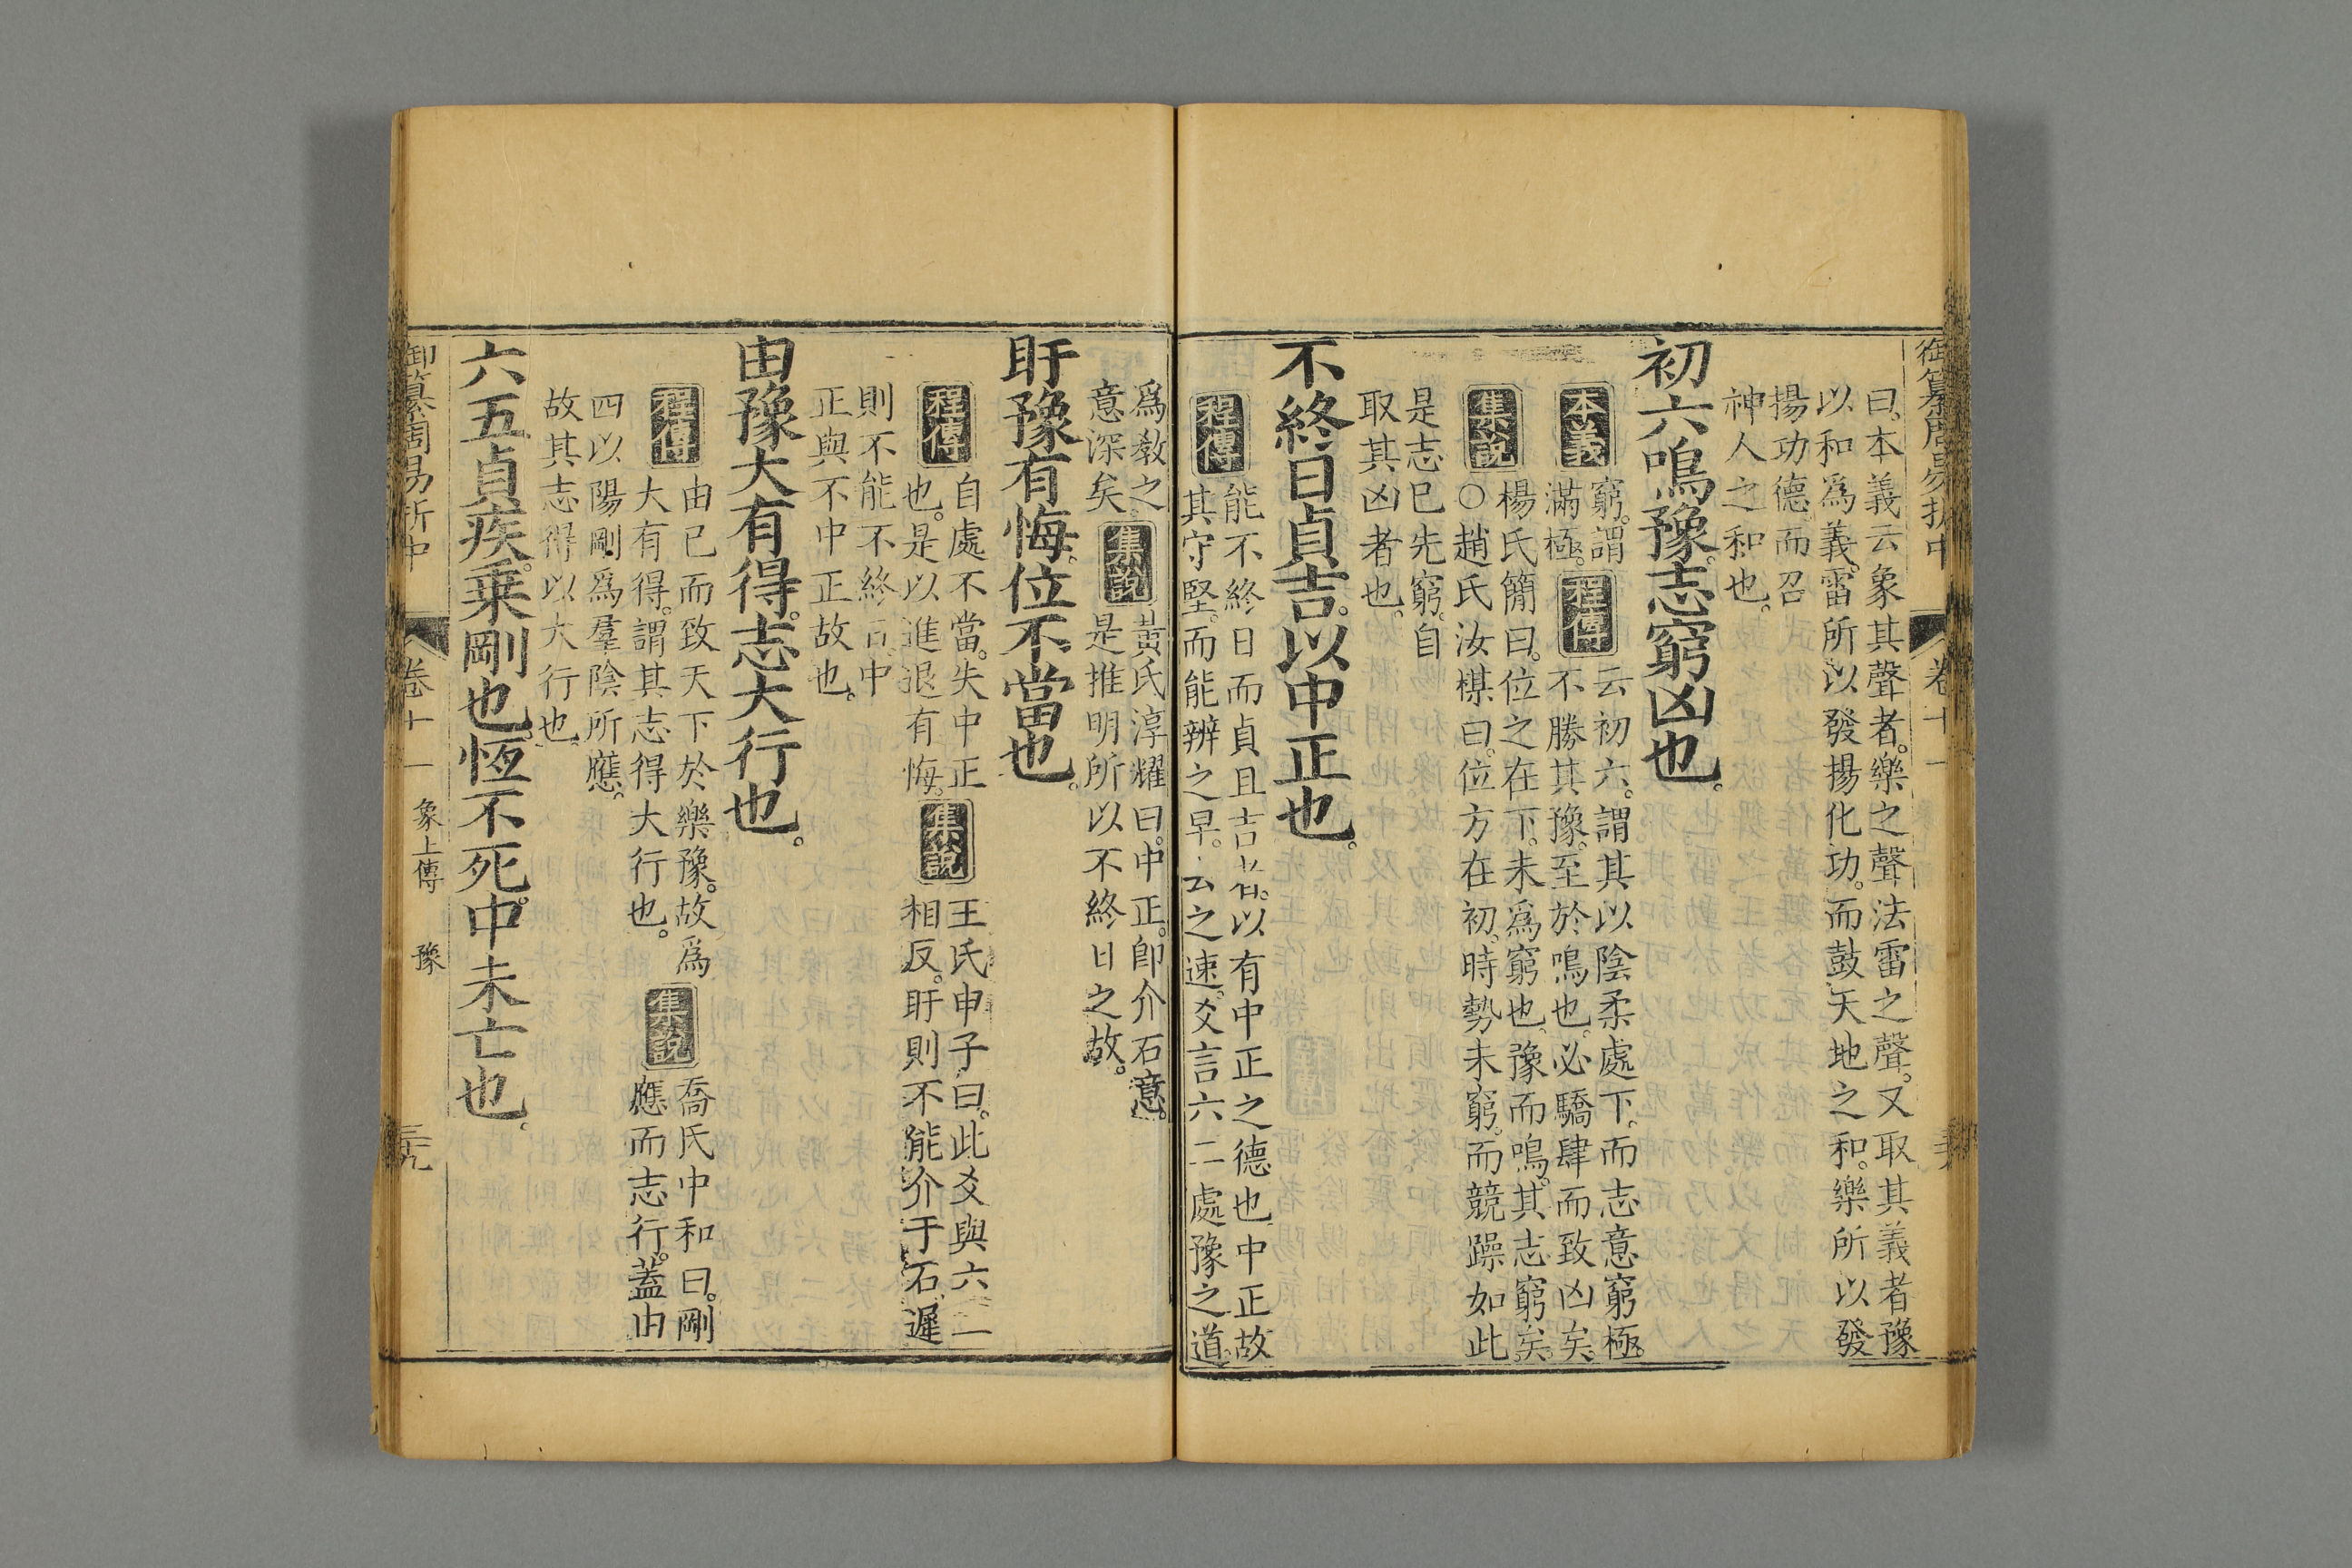 御纂周易折中
卷十一
曰。本義云象其聲者。樂之聲法雷之聲。又取其義者豫
以和爲義。雷所以發揚化功。而鼓天地之和。樂所以發
揚功德。而召
神人之和也。
初六鳴豫。志窮凶也。
本義
窮。謂
滿極。
程傳
云初六。謂其以陰柔處下。而志意窮極。
不勝其豫。至於鳴也。必驕肆而致凶矣。
集說
楊氏簡曰。位之在下。未爲窮也。豫而鳴。其志窮矣。
○趙氏汝楳曰。位方在初。時勢未窮。而競躁如此
是志已先窮。自
取其凶者也。
不終日貞吉。以中正也。
程傳
能不終日而貞且吉者。以有中正之德也中正故
其守堅。而能辨之早。去之速。爻言六二處豫之道。
爲教之
意深矣。
集說
黃氏淳耀曰。中正。卽介石意。
是推明所以不終日之故。
盱豫有悔。位不當也。
程傳
自處不當。失中正
也。是以進退有悔。
集說
王氏申子曰。此爻與六二
相反。盱則不能介于石。遲
則不能不終日。中
正與不中正故也。
由豫大有得。志大行也。
程傳
由已而致天下於樂豫。故爲
大有得。謂其志得大行也。
集說
喬氏中和曰。剛
應而志行。蓋由
四以陽剛爲羣陰所應。
故其志得以大行也。
六五貞疾。乘剛也。恆不死。中未亡也。
御纂周易折中
卷十一
象上傳
豫
三九